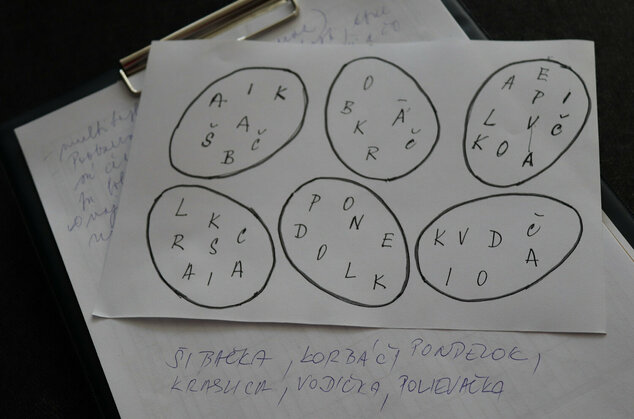 A I K
Š A Č
B
O
B Á
K Č
R
A E
P I
L V Č
K O A
L K C
R S
A I A
P O
D N E
O L K
K V D Č
I O A
ŠIBAČKA, KORBÁČ, PONDELOK,
KRASLICA, VODIČKA, POLIEVAČKA